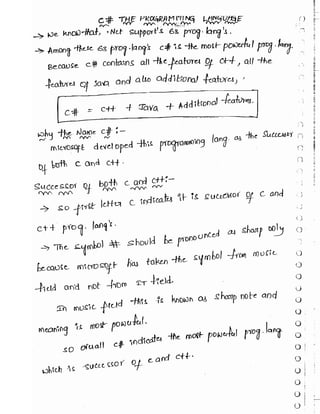 C# THE PROGRAMMING LANGUAGE
→ We know that, .Net support's 63 prog. lang's.
→ Among these 63 prog-lang's c# is the most powerful prog. lang.
Because c# contains all the features of c++, all the
features of Java and also additional features.
C# = C++ + Java + Additional features.
Why the Name c# :-
microsoft developed this programming lang as the Successor
of both c and c++.
Successor of both c and c++:-
→ so first letter c indicates it is successor of c and
c++ prog. lang's.
→ The symbol # should be pronounced as sharp only
because microsoft has taken the symbol from music
field and not from IT field.
In music field this is known as sharp note and
meaning is most powerful.
so overall c# indicates the most powerful prog. lang
which is successor of c and c++.